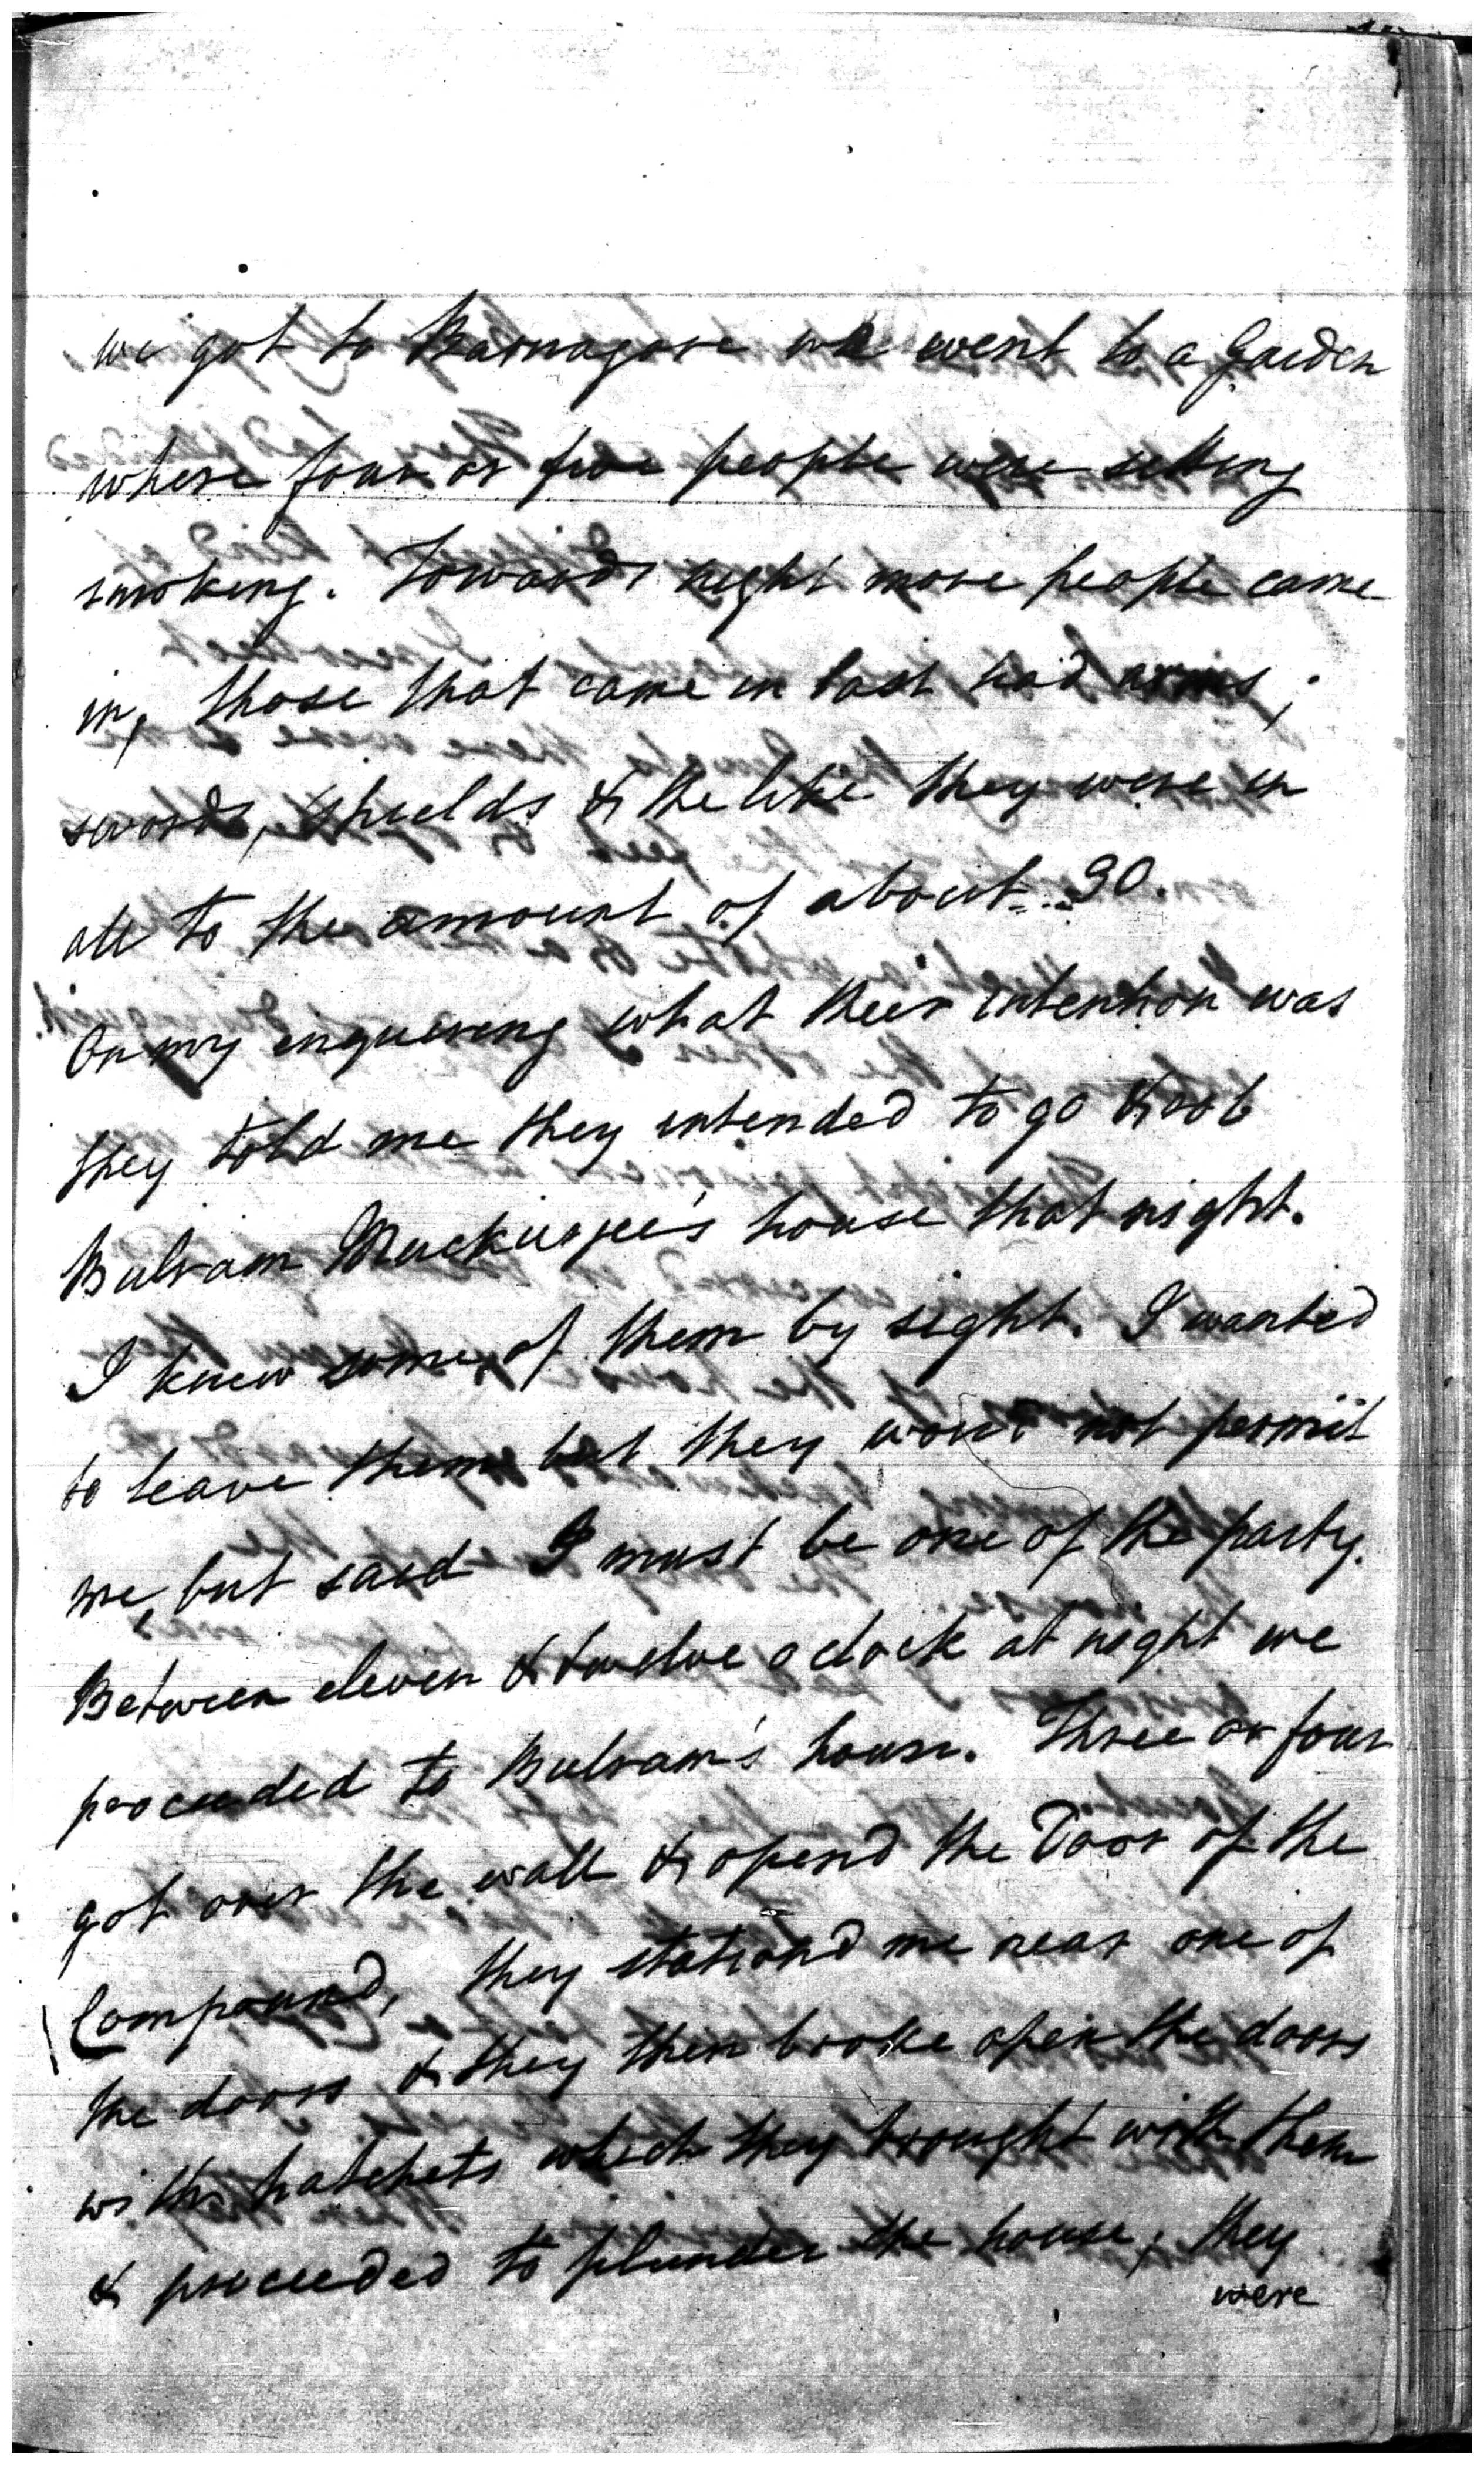 we got to Barnagore we went to a Garden
where four or five people were setting
smoking. Towards night more people came
in, those that came in last had arms,
swords, shields & the like they were in
all to the amount of about 30.
On my enquiring what their intention was
they told me they intended to go & rob
Bulram Muckurjee's house that night.
I knew some of them by sight. I wanted
to leave them but they wou'd not permit
me, but said I must be one of the party.
Between eleven & twelve o clock at night we
proceeded to Bulram's house. Three or four
got over the wall & opend the Door of the
Compound, they stationd me near one of
the doors & they then broke open the doors
with hatchets which they brought with them
& proceeded to plunder the house, they
were